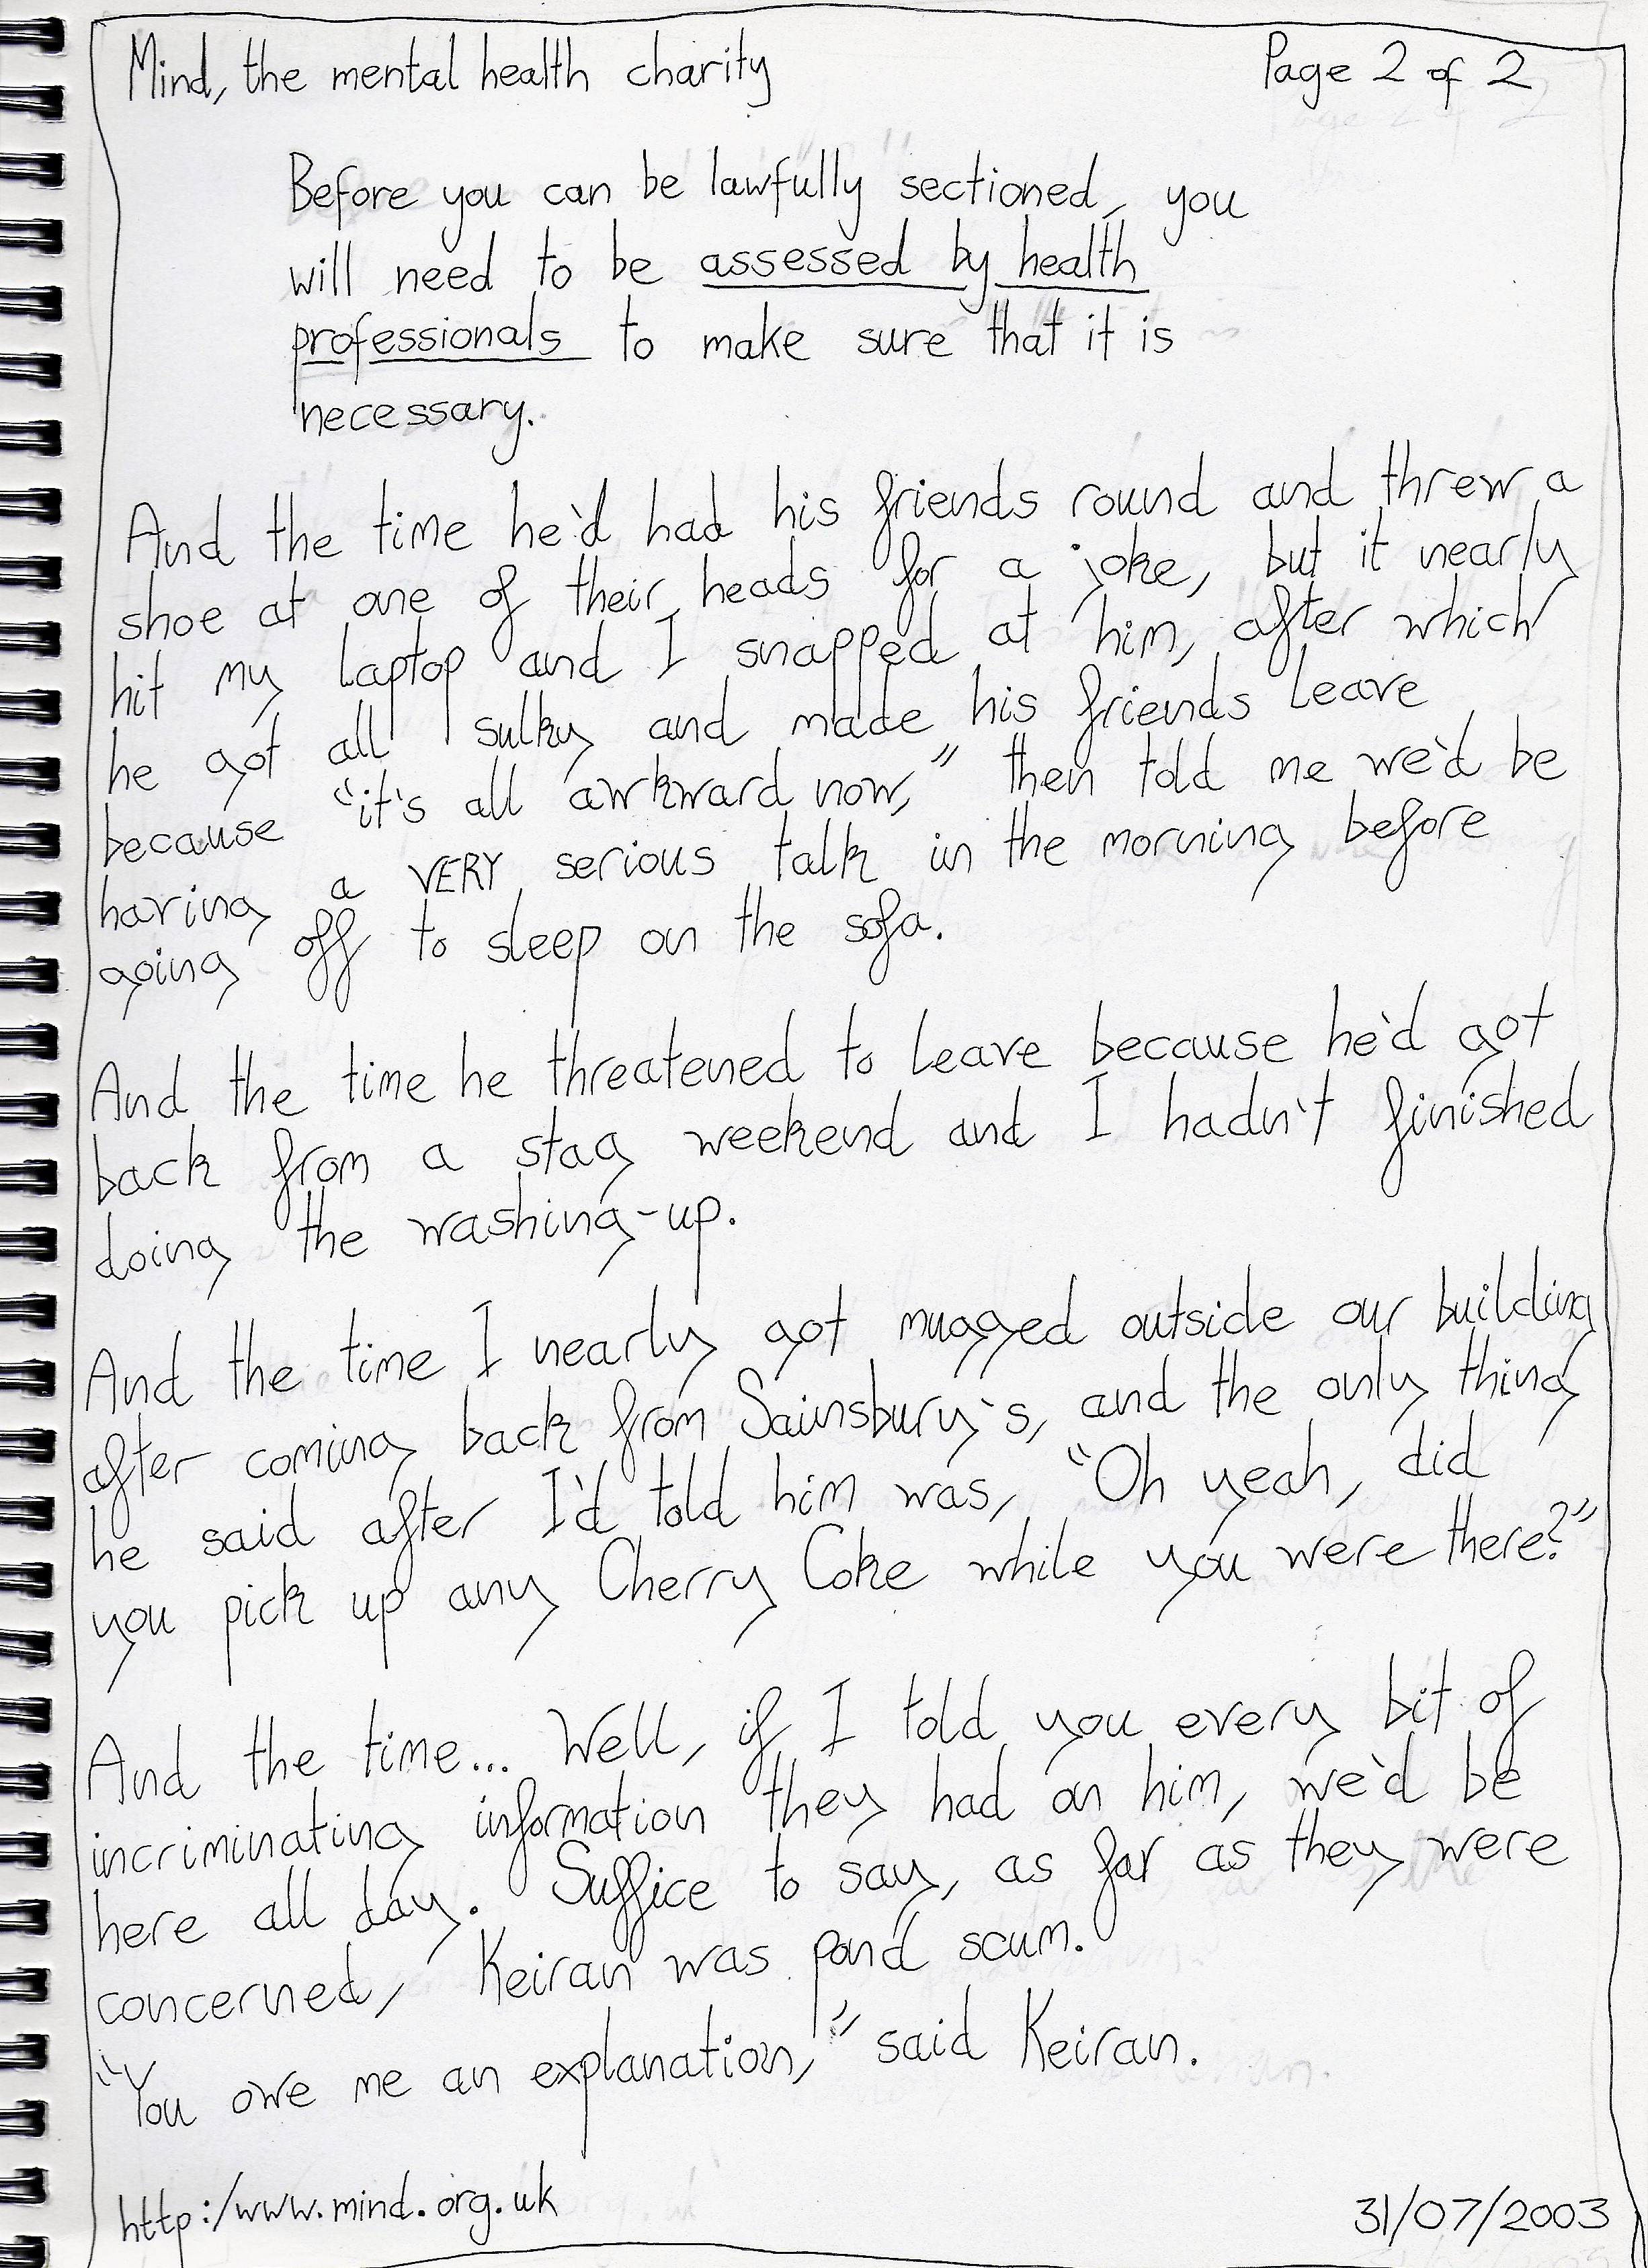 Mind, the mental health charity
Page 2 of 2
Before you can be lawfully sectioned, you
will need to be assessed by health
professionals to make sure that it is
necessary.
And the time he'd had his friends round and threw a
shoe at one of their heads for a joke, but it nearly
hit my laptop and I snapped at him, after which
he got all sulky and made his friends leave
because "it's all awkward now," then told me we'd be
having a VERY serious talk in the morning before
going off to sleep on the sofa.
And the time he threatened to leave because he'd got
back from a stag weekend and I hadn't finished
doing the washing-up.
And the time I nearly got mugged outside our building
after coming back from Sainsbury's, and the only thing
he said after I'd told him was, "Oh yeah, did
you pick up any Cherry Coke while you were there?"
And the time... Well, if I told you every bit of
incriminating information they had on him, we'd be
here all day. Suffice to say, as far as they were
concerned, Keiran was pond scum.
"You owe me an explanation," said Keiran.
http:/www.mind.org.uk
31/07/2003